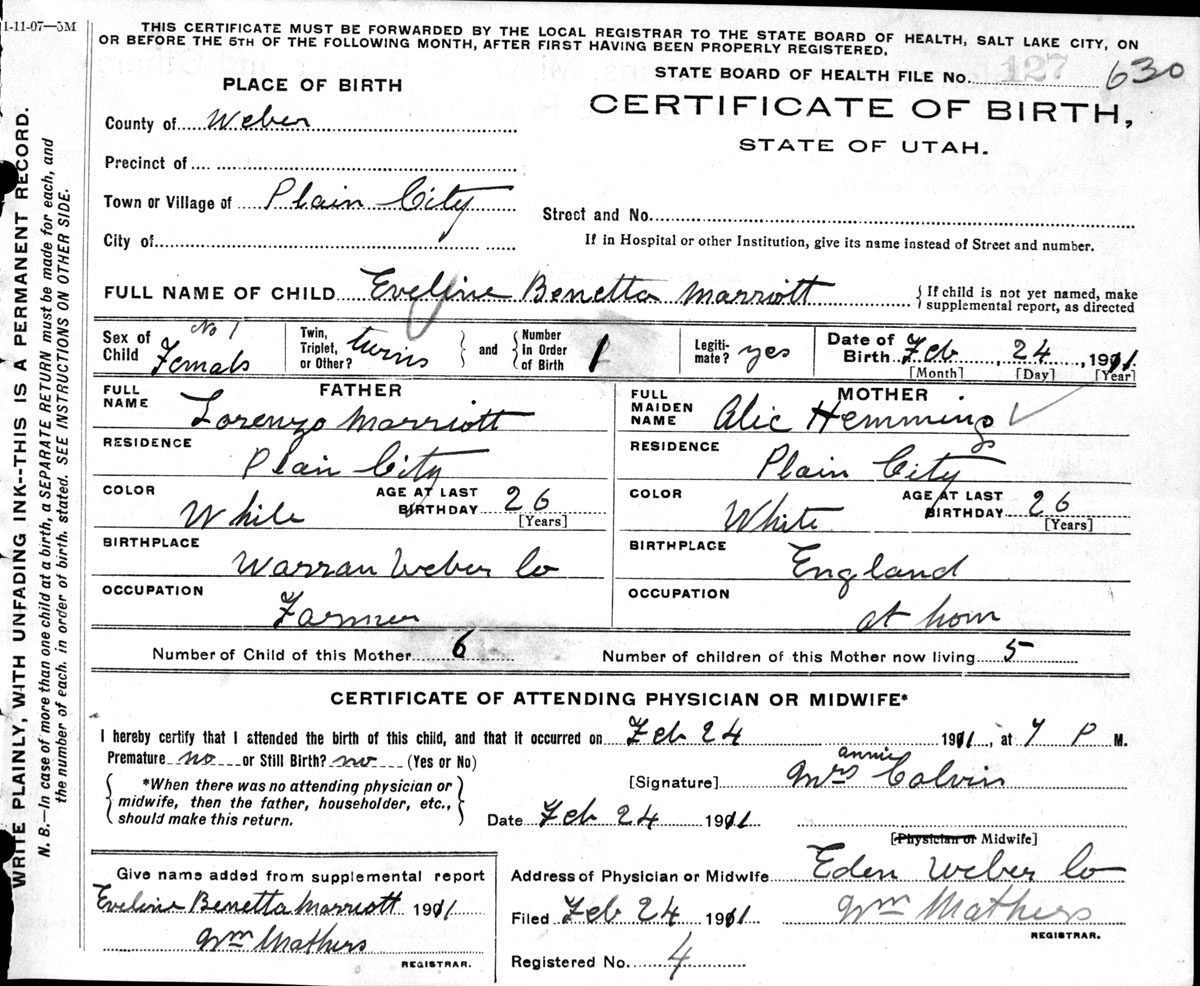 1-11-07—5M
THIS CERTIFICATE MUST BE FORWARDED BY THE LOCAL REGISTRAR TO THE STATE BOARD OF HEALTH, SALT LAKE CITY, ON
OR BEFORE THE 5TH OF THE FOLLOWING MONTH, AFTER FIRST HAVING BEEN PROPERLY REGISTERED.
STATE BOARD OF HEALTH FILE No. 127 630
PLACE OF BIRTH
CERTIFICATE OF BIRTH,
STATE OF UTAH.
County of Weber
Precinct of
Town or Village of Plain City
Street and No.
City of
If in Hospital or other Institution, give its name instead of Street and number.
FULL NAME OF CHILD Eveline Benetta Marriott
{ If child is not yet named, make
supplemental report, as directed
Sex of Child No 1 Female
Twin, Triplet, or Other? twins
and
Number in Order of Birth 1
Legiti-mate? yes
Date of Birth Feb 24, 1911
[Month] [Day] [Year]
FATHER
MOTHER
FULL NAME Lorenzo Marriott
FULL MAIDEN NAME Alic Hemmings
RESIDENCE Plain City
RESIDENCE Plain City
COLOR While
AGE AT LAST BIRTHDAY 26 [Years]
COLOR White
AGE AT LAST BIRTHDAY 26 [Years]
BIRTHPLACE Warran Weber Co
BIRTHPLACE England
OCCUPATION Farmer
OCCUPATION at hom
Number of Child of this Mother 6
Number of children of this Mother now living 5
CERTIFICATE OF ATTENDING PHYSICIAN OR MIDWIFE*
I hereby certify that I attended the birth of this child, and that it occurred on Feb 24 1911, at 7 P M.
Premature no or Still Birth? no (Yes or No)
*When there was no attending physician or
midwife, then the father, householder, etc.,
should make this return.
[Signature] Mrs annie Calvin
Date Feb 24 1911
[Physician or Midwife]
Give name added from supplemental report
Eveline Benetta Marriott 1911
Wm Mathers
REGISTRAR.
Address of Physician or Midwife Eden Weber Co
Filed Feb 24 1911 Wm Mathers
REGISTRAR.
Registered No. 4
WRITE PLAINLY, WITH UNFADING INK--THIS IS A PERMANENT RECORD.
N. B.—In case of more than one child at a birth, a SEPARATE RETURN must be made for each, and
the number of each, in order of birth, stated. SEE INSTRUCTIONS ON OTHER SIDE.